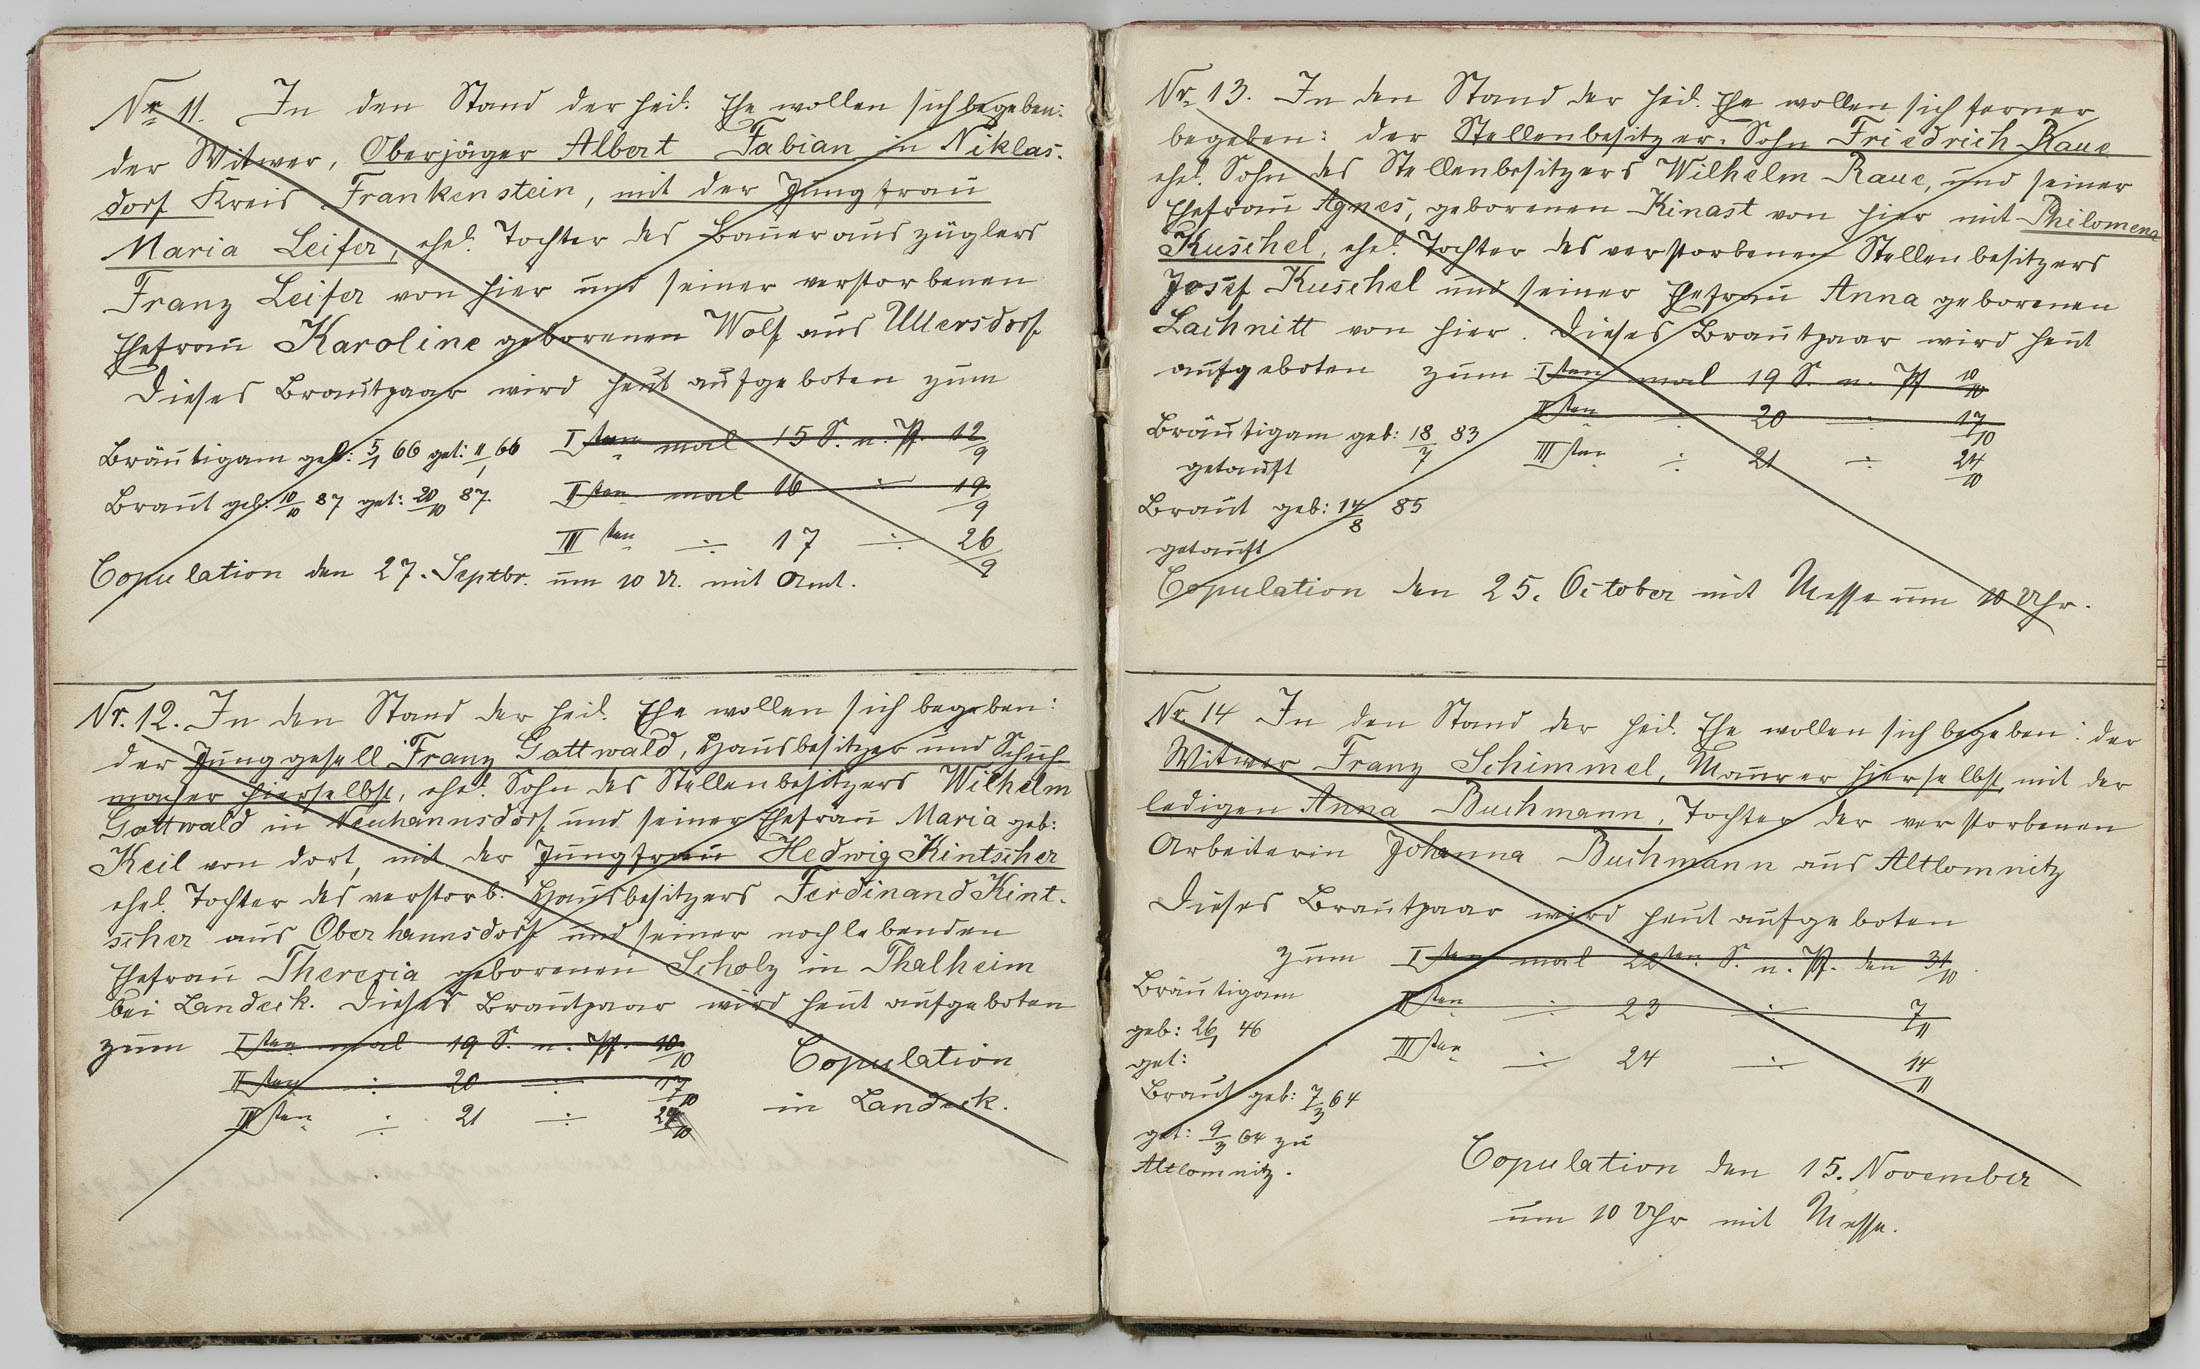 Nr. 11. In den Stand der heil. Ehe wollen sich begeben:
der Witwer, Oberjäger Albert Fabian in Niklas-
dorf Kreis Frankenstein, mit der Jungfrau
Maria Leifer, ehel. Tochter des Bauerauszüglers
Franz Leifer von hier und seiner verstorbenen
Ehefrau Karoline geborenen Wolf aus Ullersdorf
Dieses Brautpaar wird heut aufgeboten zum
Bräutigam geb: 5/1 66 get: 11/1 66 Isten mal 15 S. n. Pf. 12/9
Braut geb: 10/10 87 get: 20/10 87. IIsten mal 16 ÷ 19/9
IIIten ÷ 17 ÷ 26/9
Copulation den 27. Septbr. um 10 U. mit Amt.
Nr. 12. In den Stand der heil. Ehe wollen sich begeben:
der Junggesell Franz Gottwald, Hausbesitzer und Schuh
macher hierselbst, ehel. Sohn des Stellenbesitzers Wilhelm
Gottwald in Neuhannsdorf und seiner Ehefrau Maria geb:
Keil von dort, mit der Jungfrau Hedwig Kintscher
ehel. Tochter des verstorb. Hausbesitzers Ferdinand Kint-
scher aus Oberhannsdorf und seiner noch lebenden
Ehefrau Theresia geborenen Scholz in Thalheim
bei Landeck. Dieses Brautpaar wird heut aufgeboten
zum Isten mal 19 S. n. Pf. 10/10
IIsten ÷ 20 ÷ 17/10
IIIsten ÷ 21 ÷ 24/10
Copulation
in Landeck.
Nr. 13. In den Stand der heil. Ehe wollen sich ferner
begeben: der Stellenbesitzer-Sohn Friedrich Raue
ehel. Sohn des Stellenbesitzers Wilhelm Raue, und seiner
Ehefrau Agnes, geborenen Kinast von hier mit Philomena
Kuschel, ehel. Tochter des verstorbenen Stellenbesitzers
Josef Kuschel und seiner Ehefrau Anna geborenen
Lachnitt von hier. Dieses Brautpaar wird heut
aufgeboten zum Isten mal 19 S. n. Pf 10/10
IIsten ÷ 20 ÷ 17/10
Bräutigam geb: 18/7 83 IIIsten ÷ 21 ÷ 24/10
getauft
Braut geb: 14/8 85
getauft
Copulation den 25. October mit Messe um 10 Uhr.
Nr. 14 In den Stand der heil. Ehe wollen sich begeben: der
Witwer Franz Schimmel, Maurer hierselbst, mit der
ledigen Anna Buchmann, Tochter der verstorbenen
Arbeiterin Johanna Buchmann aus Altlomnitz
Dieses Brautpaar wird heut aufgeboten
zum Isten mal 22ten S. n. Pf. den 31/10
Bräutigam IIsten ÷ 23 ÷ 7/11
geb: 26/1 46
get: IIIsten ÷ 24 ÷ 14/11
Braut geb: 7/3 64
get: 9/3 64 zu
Altlomnitz.
Copulation den 15. November
um 10 Uhr mit Messe.